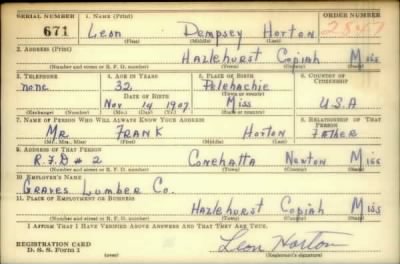 SERIAL NUMBER 1. NAME (Print) ORDER NUMBER
671 Leon Dempsey Horton
(First) (Middle) (Last)
2. ADDRESS (Print)
Hazlehurst Copiah Miss
(Number and street or R. F. D. number) (Town) (County) (State)
3. TELEPHONE 4. AGE IN YEARS 5. PLACE OF BIRTH 6. COUNTRY OF CITIZENSHIP
none 32 Pelehachie
DATE OF BIRTH (Town or county)
Nov 14 1907 Miss U.S.A
(Exchange) (Number) (Mo.) (Day) (Yr.) (State or country)
7. NAME OF PERSON WHO WILL ALWAYS KNOW YOUR ADDRESS 8. RELATIONSHIP OF THAT PERSON
Mr. Frank Horton Father
(Mr., Mrs., Miss) (First) (Middle) (Last)
9. ADDRESS OF THAT PERSON
R.F.D # 2 Conehatta Newton Miss
(Number and street or R. F. D. number) (Town) (County) (State)
10. EMPLOYER'S NAME
Graves Lumber Co.
11. PLACE OF EMPLOYMENT OR BUSINESS
Hazlehurst Copiah Miss
(Number and street or R. F. D. number) (Town) (County) (State)
I AFFIRM THAT I HAVE VERIFIED ABOVE ANSWERS AND THAT THEY ARE TRUE.
REGISTRATION CARD Leon Horton
D. S. S. Form 1 (over) (Registrant's signature)